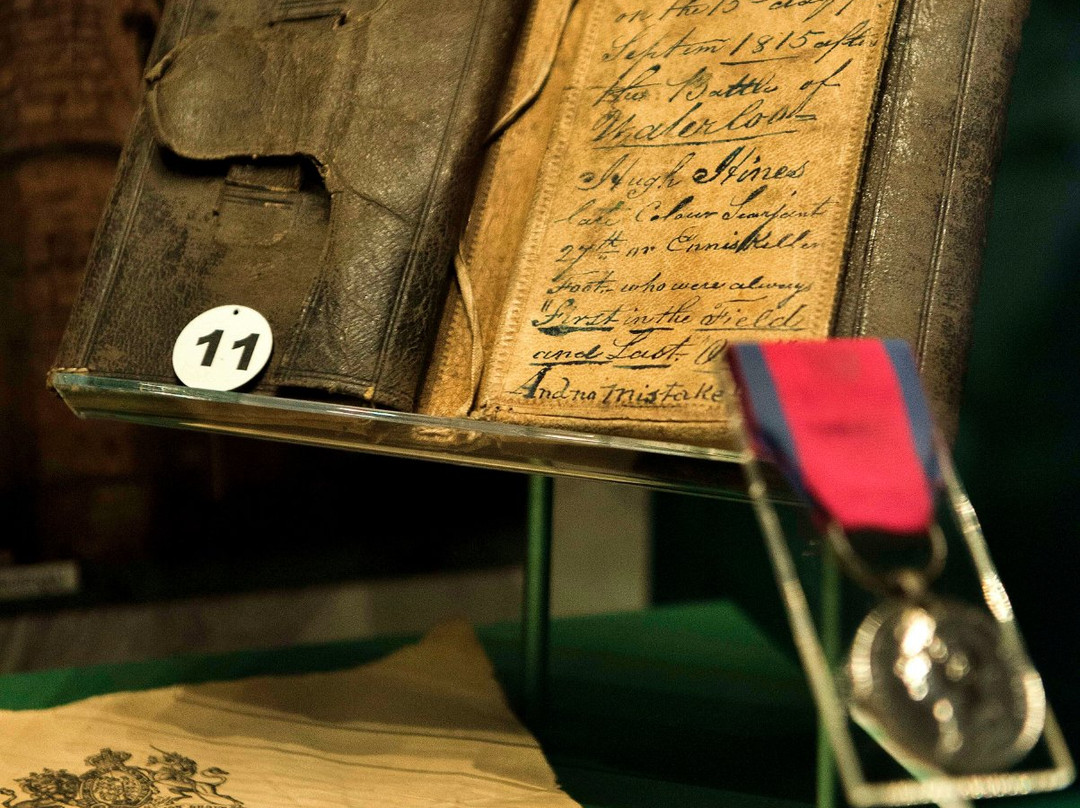 on the 15th day
Septem 1815 after
the Battle of
Waterloo=
Hugh Hines
late Colour Searjant
27th or Enniskillen
Foot who were always
"First in the Field
and Last
And no Mistake
11